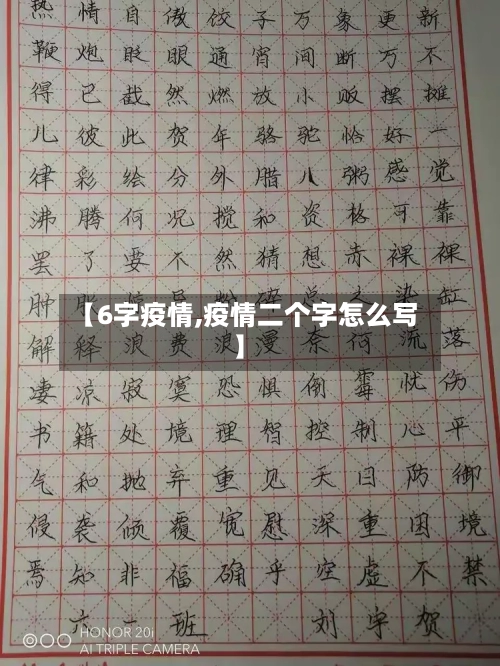 热情自傲饺子万象更新
鞭炮眨眼通宵间断万不
得已截然燃放小贩摆摊
儿彼此贺年骆驼恰好一
律彩绘分外腊八粥感觉
沸腾何况搅和资格可靠
罢了要不然猜想赤裸裸
肿
染缸
【6字疫情,疫情二个字怎么写
】
解释浪费浪漫奈何流落
凄凉寂寞恐惧倒霉忧伤
书籍处境理智控制心平
气和抛弃重见天日防御
侵袭倾覆宽慰深重困境
焉知非福确乎空虚不禁
六一班 刘宇贺
HONOR 20i
AI TRIPLE CAMERA